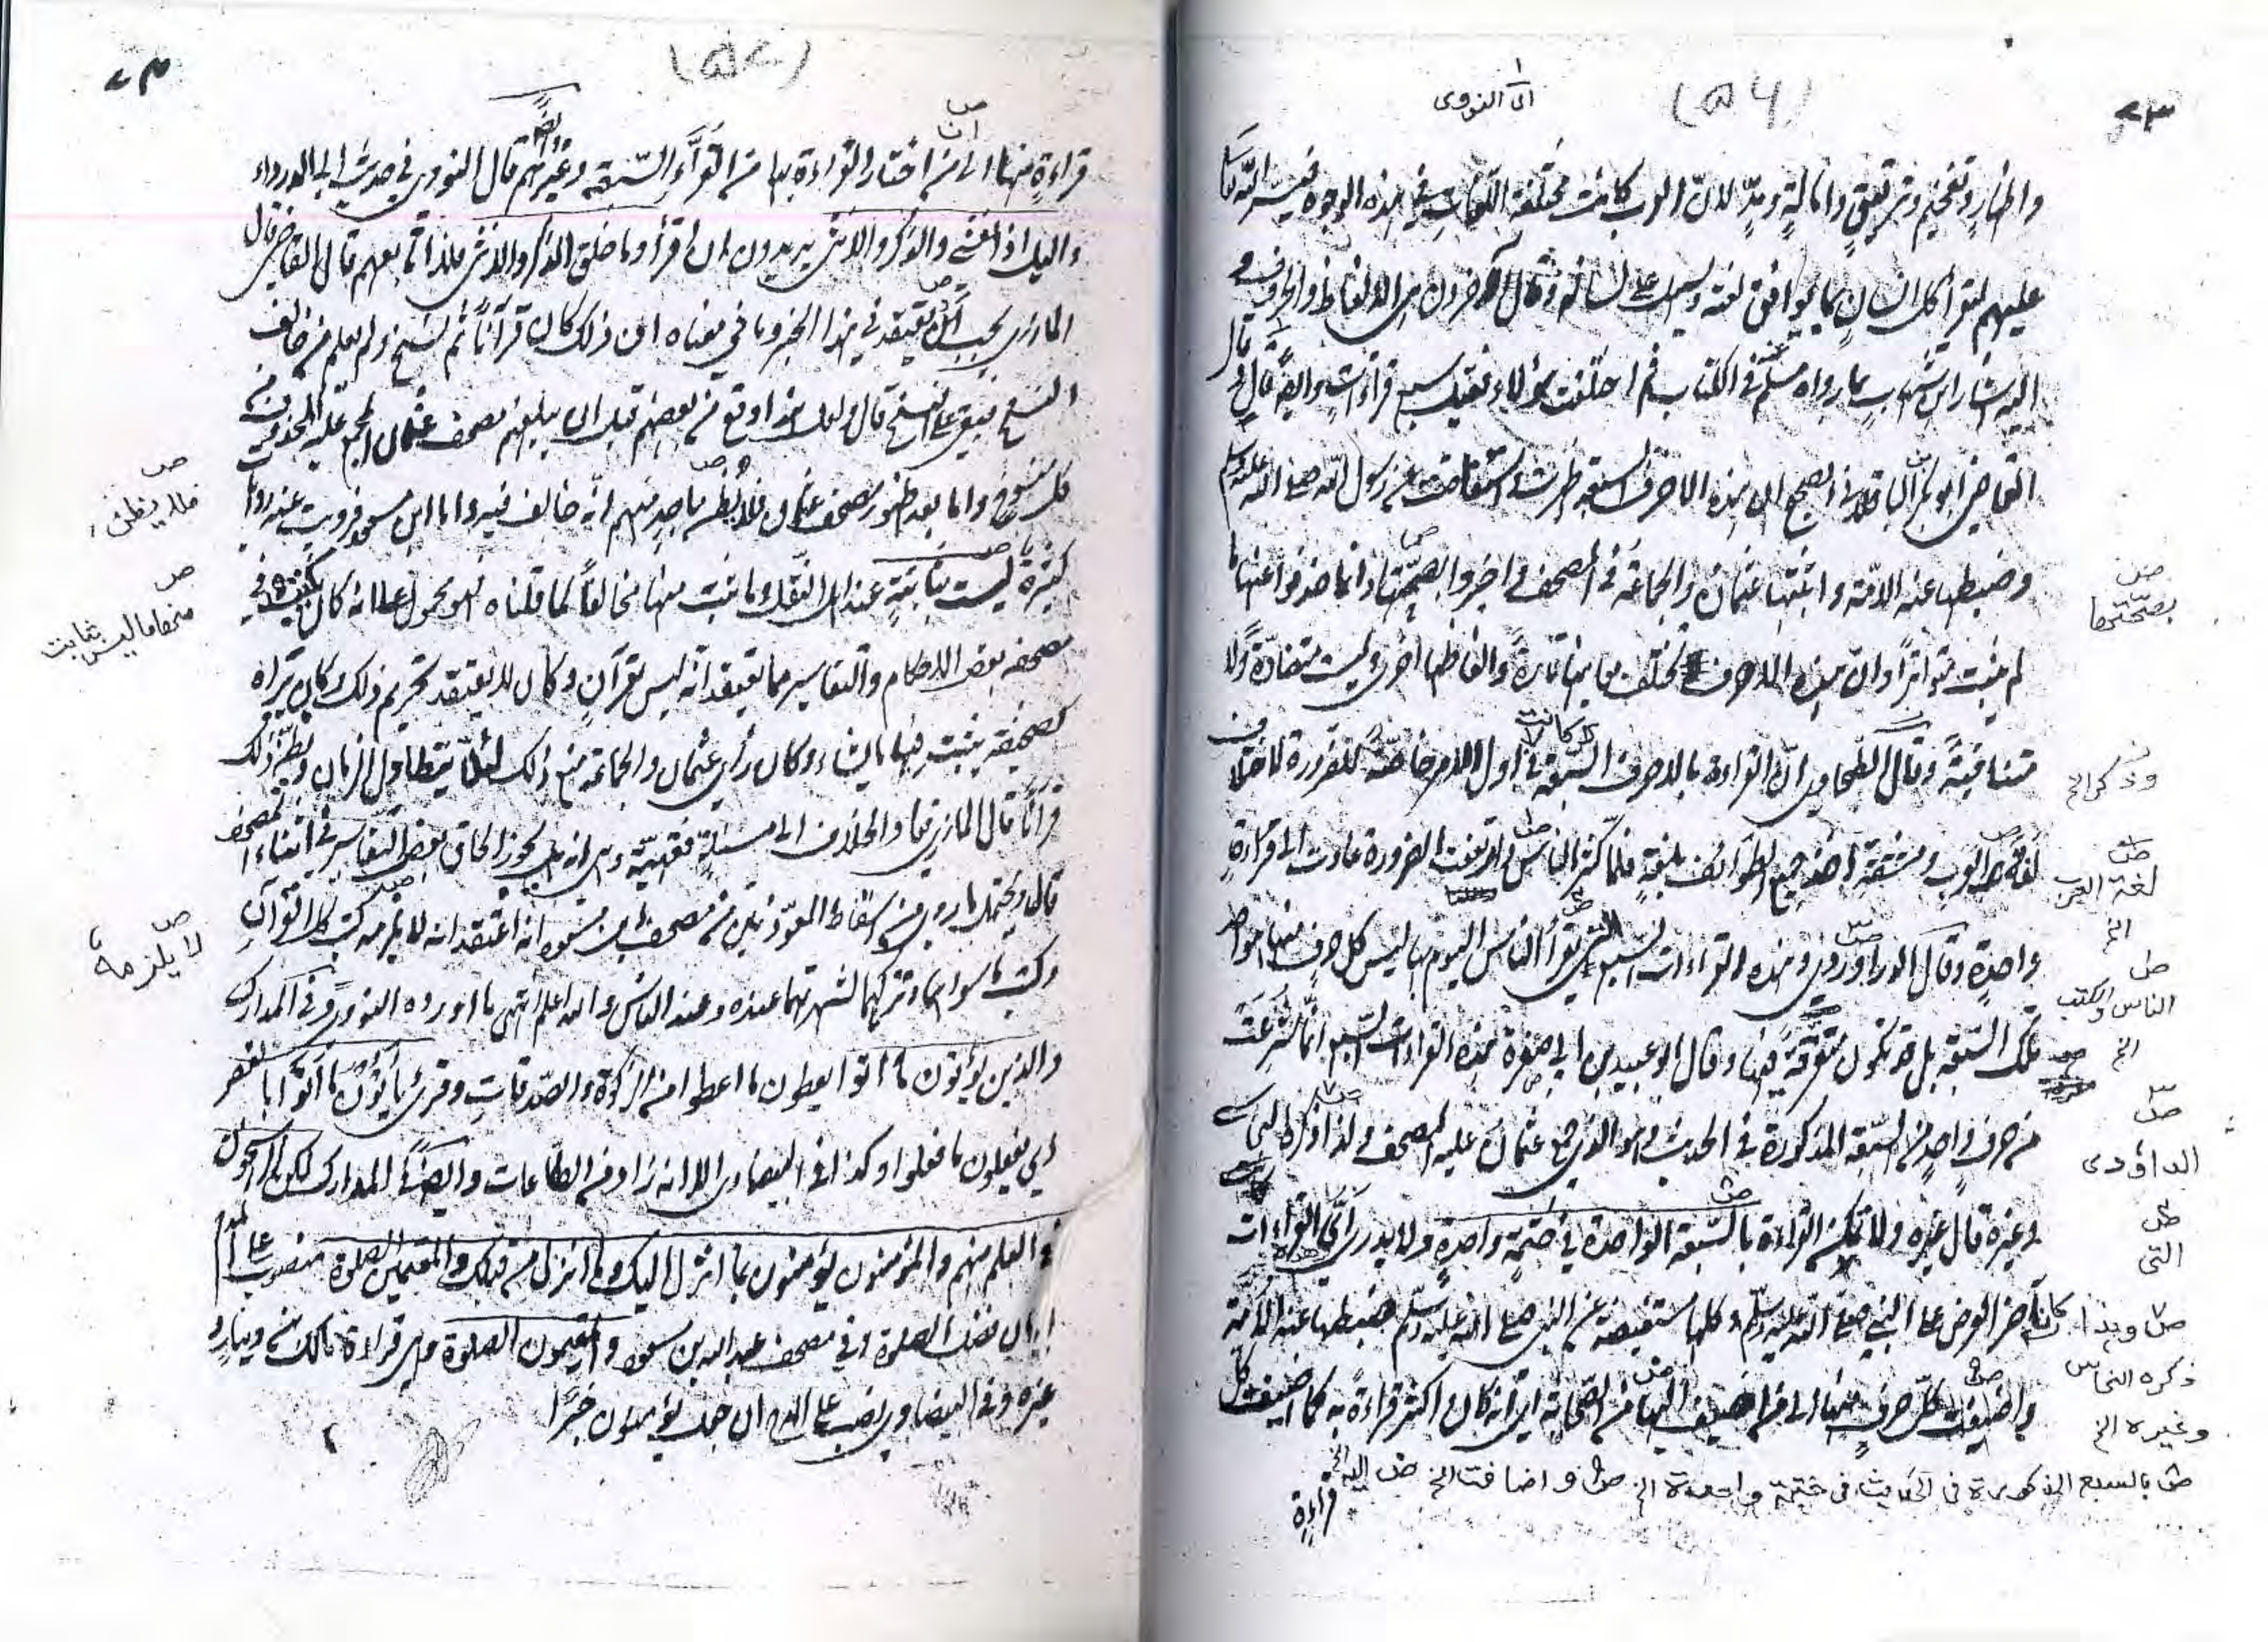 ای النووی
(۵۶)
۷۳
واظهارٍ وتفخيم وترقيقٍ وامالةٍ ومدٍّ لان العرب كانت مختلفة اللغات في هذه الوجوه فيسر الله تعالى
عليهم ليقرأ كل انسان بما يوافق لغته ويسهل على لسانه وقال آخرون هي الالفاظ والحروف و
اليه اشار ابن شهاب بما رواه مسلم في الكتاب ثم اختلفت هؤلاء فقيل سبع قراآت واوجه قال
القاضي ابو بكر الباقلاني الصحيح ان هذه الاحرف السبعة ظهرت واستفاضت عن رسول الله صلى الله عليه وسلم
وضبطها عنه الامة واثبتها عثمان والجماعة في المصحف واخبروا بصحّتها وانما حذفوا عنها ما
لم يثبت متواترًا وان هذه الاحرف تختلف معانيها تارةً والفاظها اخرى وليست متضادة ولا
متنافيةً وقال الطحاوي انّ القراءة بالاحرف السبعة كانت في اول الامر خاصة للضرورة لاختلاف
لغة العرب ومشقة اخذ جميع الطوائف بلغةٍ فلمّا كثر الناس وارتفعت الضرورة عادت الى قراءةٍ
واحدةٍ وقال الداوودي وهذه القراءات السبع التي يقرأ الناس اليوم بها ليس كل حرف منها هو احد
تلك السّبعة بل قد تكون متفرّقةً فيها وقال ابو عبيد بن ابي صفرة هذه القراءات السبع انما شرعت
من حرفٍ واحدٍ من السبعة المذكورة في الحديث وهو الذي جمع عثمان عليه المصحف ولذا ذكره النحاس
وغيره قال غيره ولا تمكن القراءة بالسّبعة الواحدة في ختمةٍ واحدةٍ ولا يدرى ايّ القراءات
كان آخر العرض على النبي صلى الله عليه وسلم وكلها مستفيضة عن النبي صلى الله عليه وسلم ضبطها عنه الامة
واضيفت كلّ حرفٍ منها الى من اضيف اليها من الصحابة اي انه كان اكثر قراءةً به كما اضيفت كل
قراءة
بصحّتها
وذكر الخ
لغة العرب
الخ
الناس والكتب
الخ
الداؤدى
التى
وهذا
ذكره النحاس
وغيره الخ
بالسبع المذكورة فى الحديث فى ختمة واحدة الخ واضافت الخ اليه الخ
(۵۷)
۷۴
قراءةٍ منها الى من اختار القراءة بها من القرّاء السّبعة وغيرهم قال النووي في حديث ابي الدرداء
والليل اذا يغشى والذكر والانثى يريدون ان اقرأ وما خلق الذكر والانثى فلا اتابعهم قال القاضي قال
المازري يجب ان يعتقد في هذا الخبر وما في معناه ان ذلك كان قرآنًا ثم نسخ ولم يعلم من خالف
النسخ فبقي على النسخ قال ولعل هذا وقع من بعضهم قبل ان يبلغهم مصحف عثمان المجمع عليه المحذوف منه
كل منسوخ واما بعد ظهور مصحف عثمان فلا يُظن باحدٍ منهم انّه خالف فيه واما ابن مسعود فرويت عنه روايات
كثيرة ليست بثابتةٍ عند اهل النقل وما ثبت منها مخالفًا لما قلناه فهو محمول على انه كان يكتب في
مصحفه بعض الاحكام والتفاسير مما يعتقد انّه ليس بقرآن وكان لا يعتقد تحريم ذلك وكان يراه
كصحيفة يثبت فيها ما يشاء وكان رأي عثمان والجماعة منع ذلك لئلّا يتطاول الزمان ويظنّ ذلك
قرآنًا قال المازري فعاد الخلاف الى مسئلةٍ فقهيّةٍ وهي انه هل يجوز الحاق بعض التفاسير في اثناء المصحف
قال ويحتمل ما روي من اسقاط المعوّذتين من مصحف ابن مسعود انه اعتقد انه لا يلزمه كتب كل القرآن
وكتب ما سواهما وتركهما لشهرتهما عنده وعند الناس والله اعلم انتهى ما اورده النووي وفي المدارك
والذين يؤتون ما اتوا يعطون ما اعطوا من الزكوة والصدقات وقرئ يأتون ما اتوا بالقصر
اي يفعلون ما فعلوا وكذا في البيضاوي الا انه زاد من الطاعات وايضًا في المدارك لكن الراسخون
في العلم منهم والمؤمنون يؤمنون بما انزل اليك وما انزل من قبلك والمقيمين الصلوة منصوب على المدح
لبيان فضل الصلوة وفي مصحف عبد الله بن مسعود والمقيمون الصلوة وهي قراءة مالك بن دينار و
غيره وفي البيضاوي نصب على المدح ان جعل يؤمنون خبرًا
فلا يظن
منها ما ليس بثابت
لا يلزمه